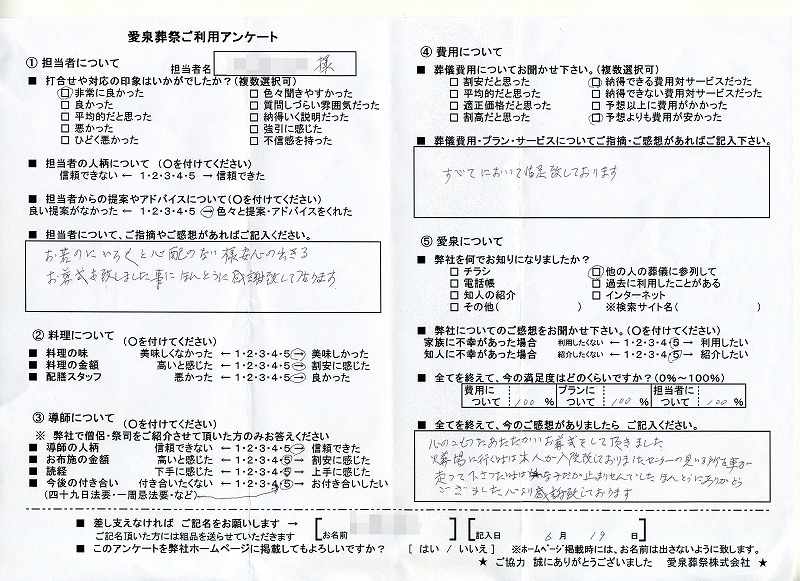 愛泉葬祭ご利用アンケート
① 担当者について
担当者名 様
■ 打合せや対応の印象はいかがでしたか?(複数選択可)
□ 非常に良かった □ 色々聞きやすかった
□ 良かった □ 質問しづらい雰囲気だった
□ 平均的だと思った □ 納得いく説明だった
□ 悪かった □ 強引に感じた
□ ひどく悪かった □ 不信感を持った
■ 担当者の人柄について (○を付けてください)
信頼できない ← 1・2・3・4・5 → 信頼できた
■ 担当者からの提案やアドバイスについて(○を付けてください)
良い提案がなかった ← 1・2・3・4・5 → 色々と提案・アドバイスをくれた
■ 担当者について、ご指摘やご感想があればご記入ください。
心配のない様安心の出きる
お葬式を致しました事にほんとうに感謝致して居ります
② 料理について (○を付けてください)
■ 料理の味 美味しくなかった ← 1・2・3・4・5 → 美味しかった
■ 料理の金額 高いと感じた ← 1・2・3・4・5 → 割安に感じた
■ 配膳スタッフ 悪かった ← 1・2・3・4・5 → 良かった
③ 導師について (○を付けてください)
※ 弊社で僧侶・祭司をご紹介させて頂いた方のみお答えください
■ 導師の人柄 信頼できない ← 1・2・3・4・5 → 信頼できた
■ お布施の金額 高いと感じた ← 1・2・3・4・5 → 割安に感じた
■ 読経 下手に感じた ← 1・2・3・4・5 → 上手に感じた
■ 今後の付き合い 付き合いたくない ← 1・2・3・4・5 → お付き合いしたい
(四十九日法要・一周忌法要・など)
④ 費用について
■ 葬儀費用についてお聞かせ下さい。(複数選択可)
□ 割安だと思った □ 納得できる費用対サービスだった
□ 平均的だと思った □ 納得できない費用対サービスだった
□ 適正価格だと思った □ 予想以上に費用がかかった
□ 割高だと思った □ 予想よりも費用が安かった
■ 葬儀費用・プラン・サービスについてご指摘・ご感想があればご記入下さい。
すべてにおいて満足致しております
⑤ 愛泉について
■ 弊社を何でお知りになりましたか?
□ チラシ □ 他の人の葬儀に参列して
□ 電話帳 □ 過去に利用したことがある
□ 知人の紹介 □ インターネット
□ その他( ) ※検索サイト名( )
■ 弊社についてのご感想をお聞かせ下さい。(○を付けてください)
家族に不幸があった場合 利用したくない ← 1・2・3・4・5 → 利用したい
知人に不幸があった場合 紹介したくない ← 1・2・3・4・5 → 紹介したい
■ 全てを終えて、今の満足度はどのくらいですか?(0%~100%)
費用について 100 % プランについて 100 % 担当者について 100 %
■ 全てを終えて、今のご感想がありましたら ご記入ください。
心のこもったあたたかいお葬式をして頂きました
火葬場に行く時は本人が入院致しておりました
走って下さった時は 止まりませんでした ほんとうにありがとう
ございました 心より感謝致しております
■ 差し支えなければ ご記名をお願いします →
ご記名頂いた方には粗品を送らせていただきます
[お名前 ] [記入日 6 月 19 日]
■ このアンケートを弊社ホームページに掲載してもよろしいですか? [ はい / いいえ ] ※ホームページ掲載時には、お名前は出さないように致します。
★ ご協力 誠にありがとうございました 愛泉葬祭株式会社 ★